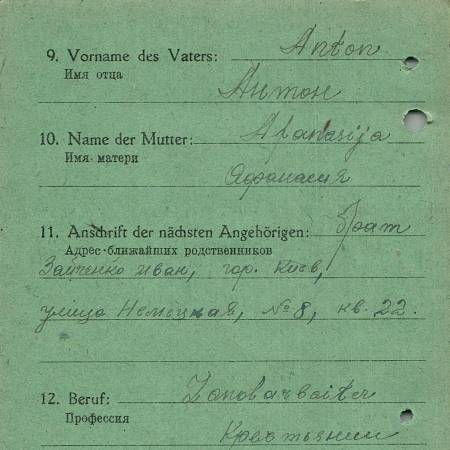 9. Vorname des Vaters: Anton
Имя отца
Антон
10. Name der Mutter: Afanasija
Имя матери
Афанасия
11. Anschrift der nächsten Angehörigen: брат
Адрес ближайших родственников
Зайченко Иван, гор. Киев,
улица Немецкая, № 8, кв. 22.
12. Beruf:
Профессия
Крестьянин